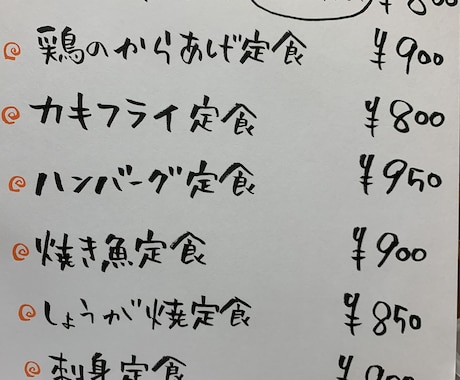 鶏のからあげ定食 ¥900
カキフライ定食 ¥800
ハンバーグ定食 ¥950
焼き魚定食 ¥900
しょうが焼定食 ¥850
刺身定食